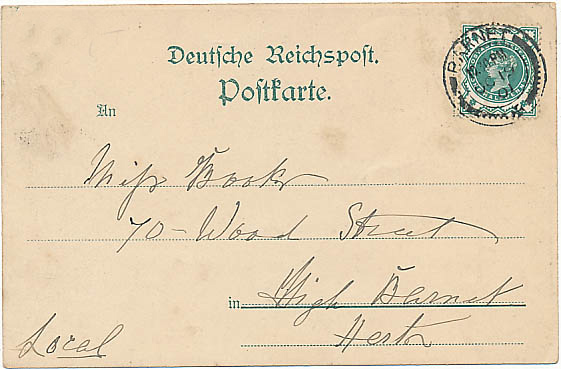 Deutsche Reichspost.
Postkarte.
An
BARNET
Miss Books
70 - Wood Street
in High Barnet
Herts
Local